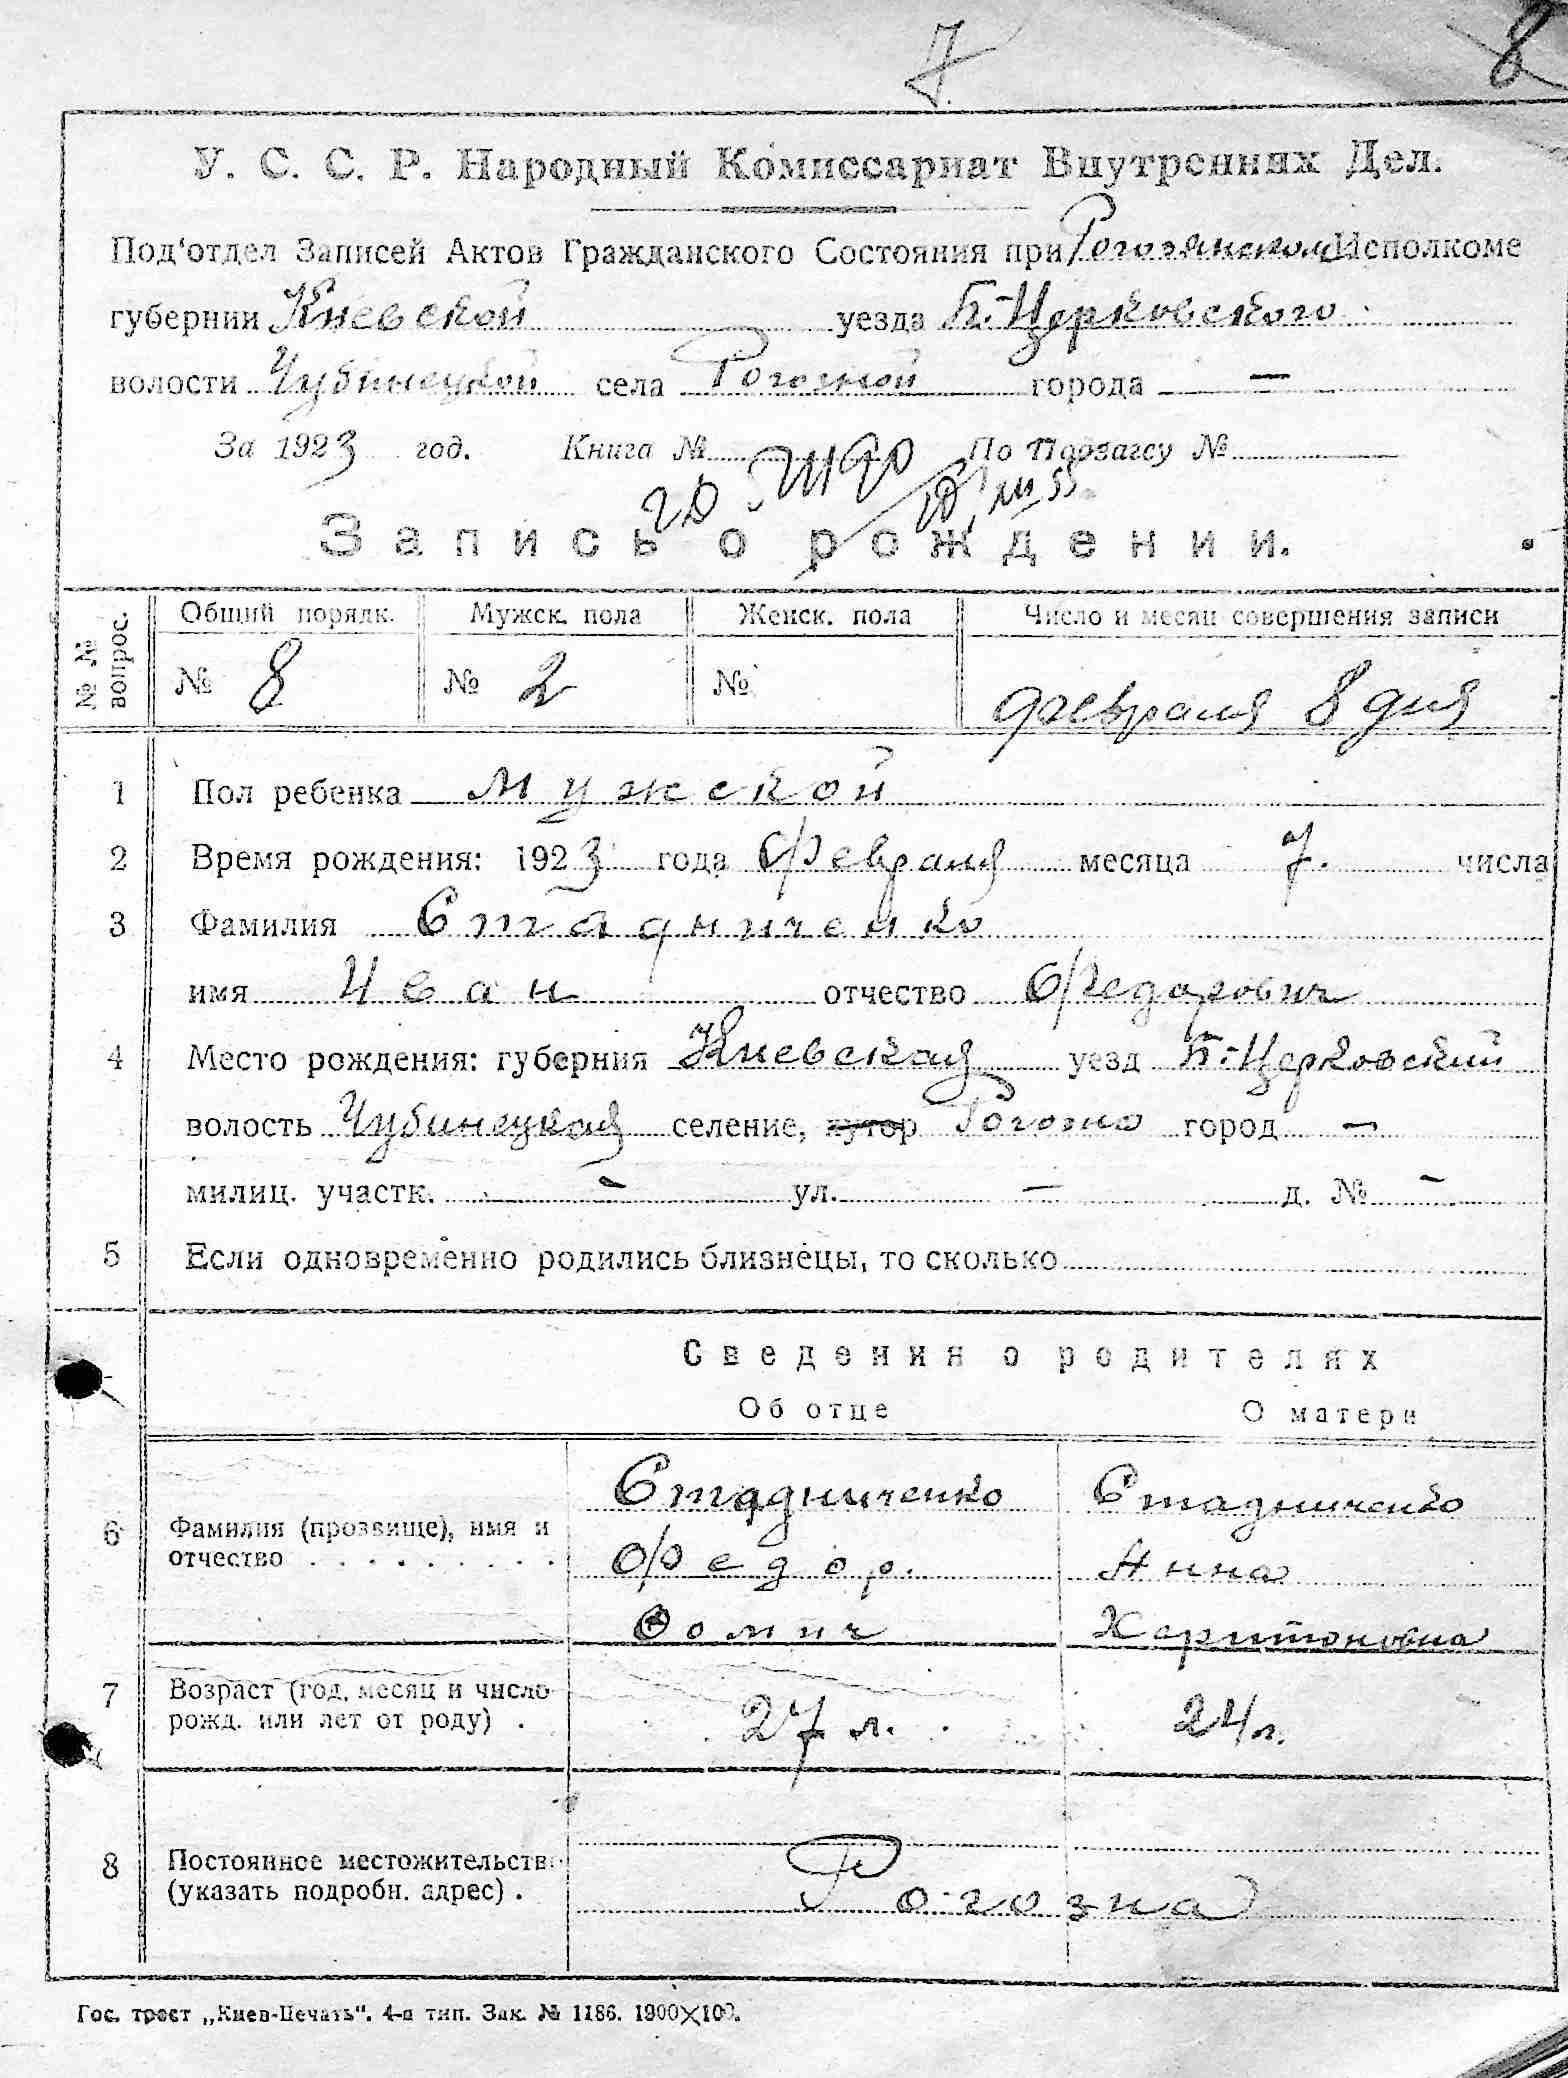 7
8
У. С. С. Р. Народный Комиссариат Внутренних Дел.
Под‘отдел Записей Актов Гражданского Состояния при Рогозянском Исполкоме
губернии Киевской уезда Б.-Церковского
волости Чубинецкой села Рогозной города —
За 1923 год. Книга № По Подзагсу №
Запись о рождении.
№ № вопрос. Общий порядк. Мужск. пола Женск. пола Число и месяц совершения записи
№ 8 № 2 № февраля 8 дня
1 Пол ребенка мужской
2 Время рождения: 1923 года февраля месяца 7. числа
3 Фамилия Стадниченко
имя Иван отчество Федорович
4 Место рождения: губерния Киевская уезд Б.-Церковский
волость Чубинецкая селение, хутор Рогозна город —
милиц. участк. — ул. — д. № —
5 Если одновременно родились близнецы, то сколько
Сведения о родителях
Об отце О матери
Стадниченко Стадниченко
6 Фамилия (прозвище), имя и
отчество Федор. Анна
Фомич Харитоновна
7 Возраст (год, месяц и число
рожд. или лет от роду) . 27 л. 24 л.
8 Постоянное местожительство
(указать подробн. адрес) . Рогозна
Гос. трест „Киев-Печать“. 4-я тип. Зак. № 1186. 1900×100.